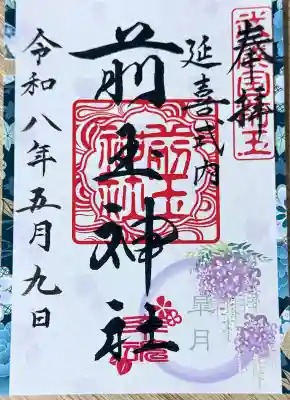 奉拝
武蔵國埼玉
延喜式内
前玉神社
前玉神社
皐月
令和八年五月九日